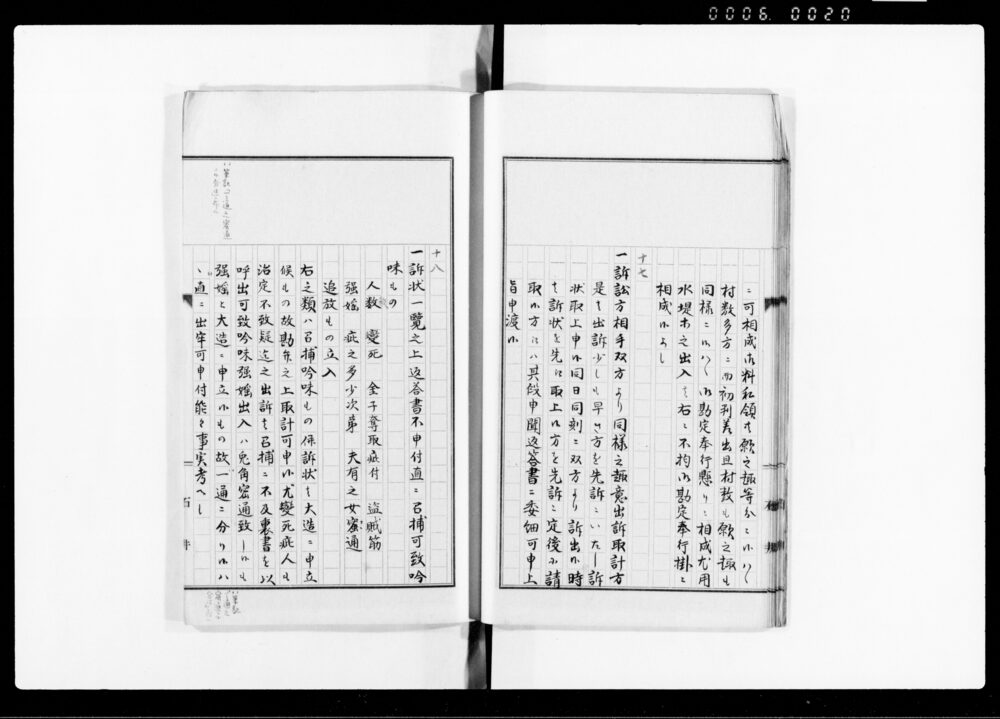 0006. 0020
ニ可相成御料私領共願之趣等分ニ候ハヽ
村数多方ニ而初判差出且村数も願之趣も
同様ニ候ハヽ御勘定奉行懸りニ相成尤用
水堤等之出入ハ右ニ不拘御勘定奉行掛ニ
相成候よし
十七
一訴訟方相手双方より同様之趣意出訴取計方
是ハ出訴少しも早き方を先訴ニいたし訴
状取上申候同日同刻ニ双方より訴出候時
ハ訴状を先に取上候方を先訴ニ定後に請
取候方ニハ其段申聞返答書ニ委細可申上
旨申渡候
十八
一訴状一覧之上返答書不申付直ニ召捕可致吟
味もの
人数 變死 金子奪取疵付 盗賊筋
强婬 疵之多少次第 夫有之女密通
追放もの立入
右之類ハ召捕吟味もの併訴状を大造ニ申立
候もの故勘弁之上取計可申候尤變死疵人も
治定不致疑迄之出訴ハ召捕ニ不及裏書を以
呼出可致吟味强婬出入ハ兎角密通致し候も
强婬と大造ニ申立候もの故一通ニ分り候ハ
直ニ出牢可申付能々事実考へし